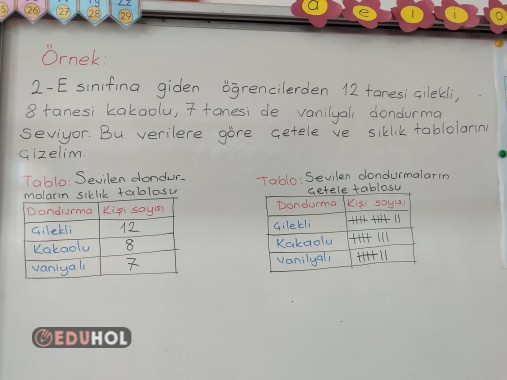 26
27
28
29
a e l i o
Örnek:
2-E sınıfına giden öğrencilerden 12 tanesi çilekli,
8 tanesi kakaolu, 7 tanesi de vanilyalı dondurma
seviyor. Bu verilere göre çetele ve sıklık tablolarını
çizelim.
Tablo: Sevilen dondur-
maların sıklık tablosu
Dondurma Kişi sayısı
Çilekli 12
Kakaolu 8
vaniyalı 7
Tablo: Sevilen dondurmaların
çetele tablosu
Dondurma Kişi sayısı
Çilekli
Kakaolu
vanilyalı
EDUHOL